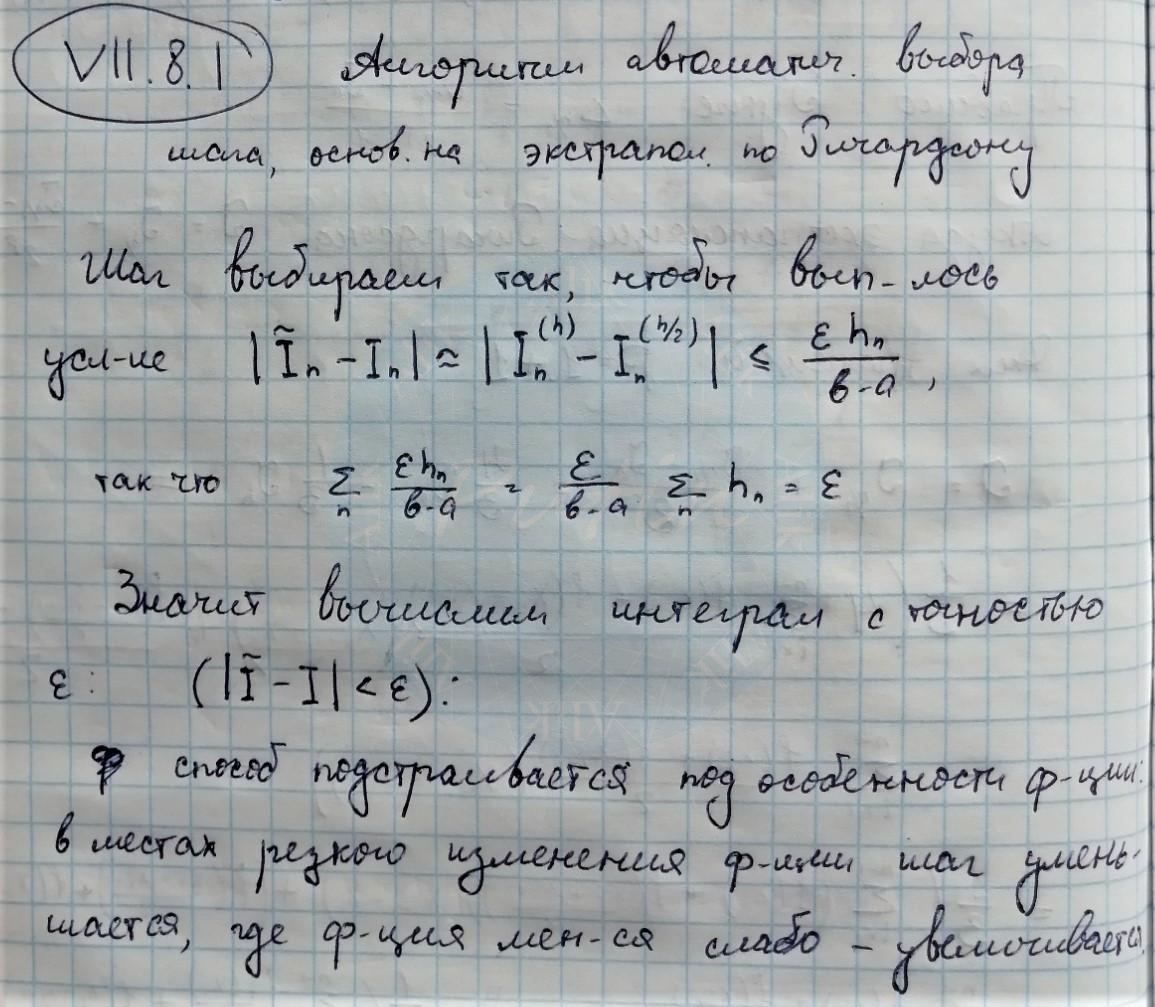 VII.8.1 Алгоритм автоматич. выбора
шага, основ. на экстрапол. по Ричардсону
Шаг выбираем так, чтобы вып-лось
усл-ие |Ĩₙ - Iₙ| ≈ |Iₙ^(h) - Iₙ^(h/2)| ≤ εhₙ/(b-a),
так что Σₙ εhₙ/(b-a) = ε/(b-a) Σₙ hₙ = ε
Значит вычислим интеграл с точностью
ε: (|Ĩ - I| < ε):
способ подстраивается под особенности ф-ции:
в местах резкого изменения ф-ции шаг умень-
шается, где ф-ция мен-ся слабо - увеличивается.